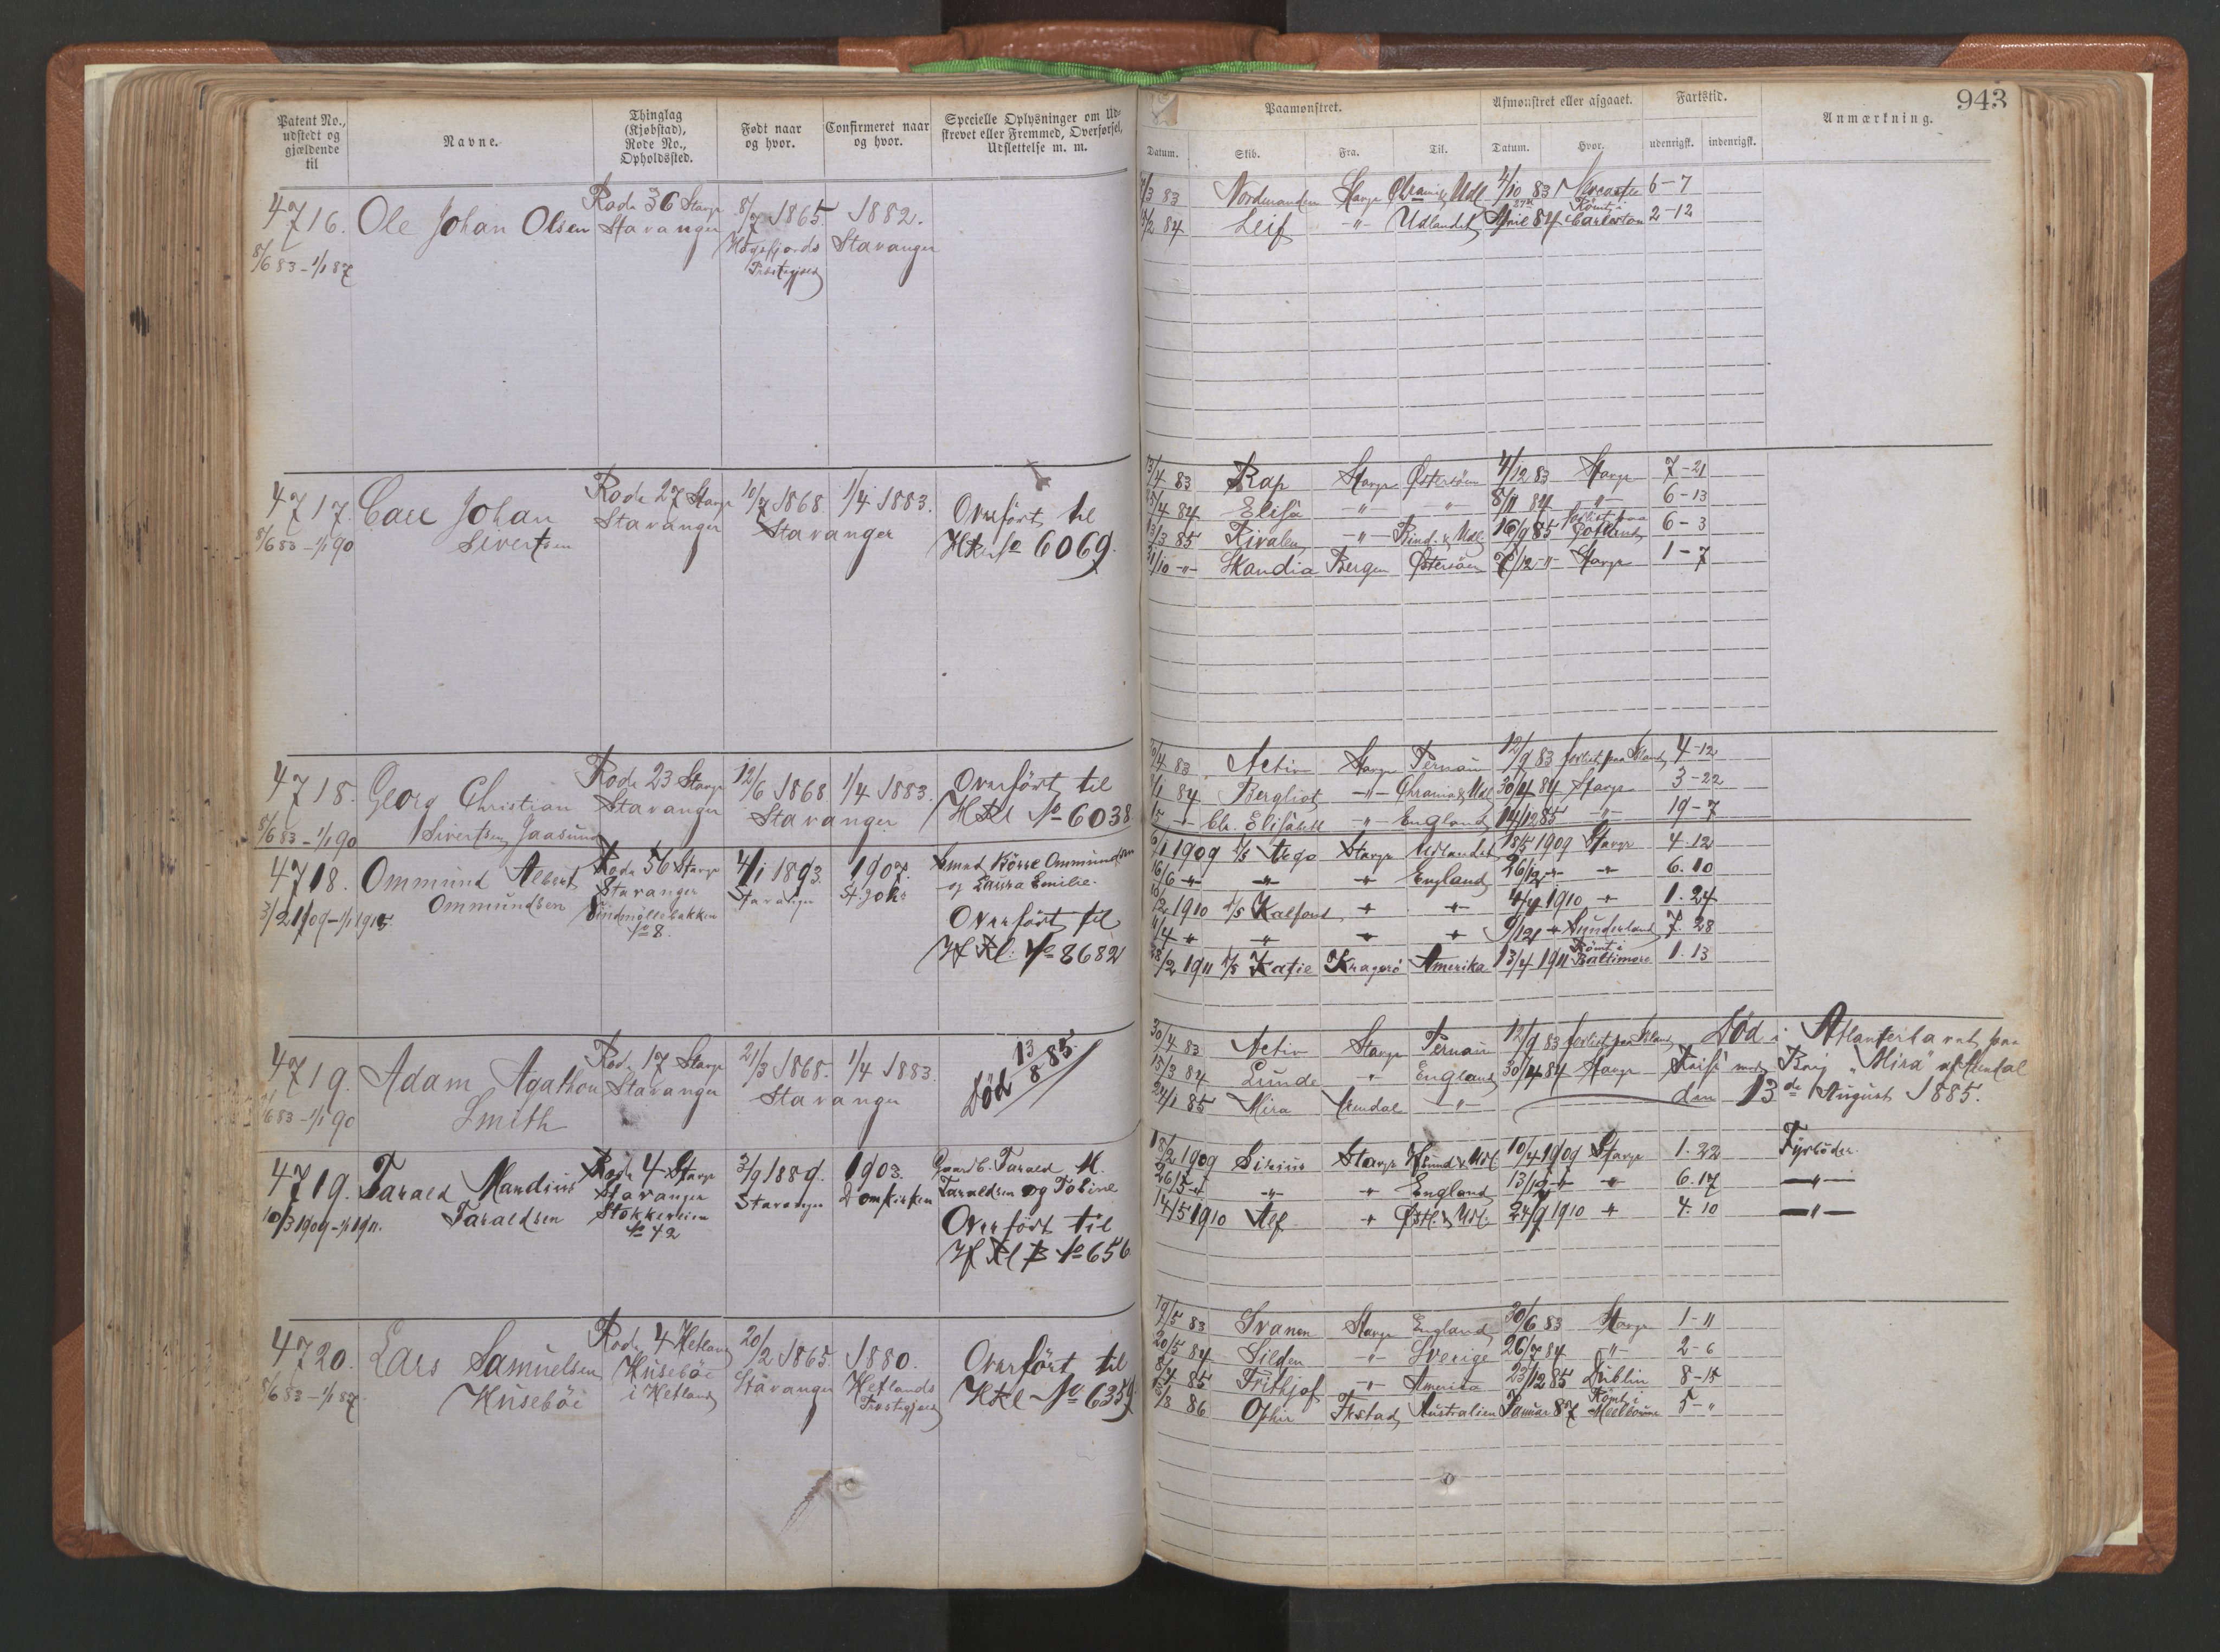 943
Patent No., udstedt og gjældende til
Navne.
Thinglag (Kjøbstad), Rode No., Opholdssted.
Født naar og hvor.
Confirmeret naar og hvor.
Specielle Oplysninger om Udskrevet eller Fremmed, Overførsel, Udslettelse m. m.
Paamønstret.
Afmønstret eller afgaaet.
Fartstid.
Anmærkning.
Datum. Skib. Fra. Til. Datum. Hvor. udenrigsk. indenrigsk.
4716. Ole Johan Olsen Rode 36 Stavgr 8/7 1865. 1882.
Stavanger Høgsfjords Stavanger
8/6 83 - 1/1 87 Præstegjæld
83 Nordmanden Stavgr Chrania & Udl 4/10 83 Newcastle 6-7
84 Leif -"- Udlandet 27de April 84 Römt i Carleston 2-12
4717. Carl Johan Rode 27 Stavgr 10/7 1868. 1/4 1883. Overført til
Sivertsen Stavanger Stavanger No 6069.
8/6 83 - 1/1 90
83 Rap Stavgr Østersøen 4/12 83 Stavgr 7-21
84 Elisa -"- " 8/11 84 -"- 6-13
85 Rivalen -"- & Udl. 16/9 85 forlist paa Gotland 6-3
/10 -"- Skandia Bergen Østersöen 7/12 -"- Stavgr 1-7
4718. Georg Christian Rode 23 Stavgr 12/6 1868 1/4 1883. Overført til
Sivertsen Jaasund Stavanger Stavanger HRl No 6038
8/6 83 - 1/1 90
83 Activ Stavgr Pernau 12/9 83 forlist paa Øland 4-12
84 Bergliot -"- Chrania & Udl 30/4 84 Stavgr 3-22
Elisabeth -"- England 14/12 85 -"- 19-7
4718. Ommund Albert Rode 56 Stavgr 4/1 1893. 1907. Smed Börre Ommundsen
Ommundsen Stavanger Stavanger St. Johs og Laura Emilie.
3/2 1909 - 1/1 1915. Vindmöllebakken No 8. Overført til
Hf Rl: No 8682
1909 D/S Vego Stavgr Udlandet 18/5 1909 Stavgr 4.12
16/6 -"- -"- " England 26/12 -"- -"- 6.10
1910 D/S Kalfond " " 4/4 1910 " 1.24
/4 " -"- " " 9/12 " Sunderland 7.28
28/2 1911 D/S Katie Kragerö Amerika 13/4 1911 Römt i Baltimore 1.13
4719. Adam Agathon Rode 17 Stavgr 21/3 1868. 1/4 1883. Död 13/8 85.
Smith Stavanger Stavanger
8/6 83 - 1/1 90
30/4 83 Activ Stavgr Pernau 12/9 83 forlist paa Øland Död i Atlanterhavet paa
15/3 84 Lunde -"- England 30/4 84 Stavgr Reise med Brig "Mira" af Mandal
24/1 85 Mira Mandal -"- den 13de August 1885.
4719. Tarald Mandius Rode 4 Stavgr 3/9 1889. 1903. Tarald M.
Taraldsen Stavanger Stavanger Domkirken Taraldsen og Tobine
10/3 1909 - 1/1 1911. Stokkeveien No 42 Overført til
Hf Rl B No 656
18/2 1909 Sirius Stavgr & Udl. 10/4 1909 Stavgr 1.22 Fyrböder.
26/5 " -"- " England 13/12 " " 6.17 -"-
14/5 1910 Alf " Østl. & Udl. 24/9 1910 " 4.10 -"-
4720. Lars Samuelsen Rode 4 Hetland 20/2 1865. 1880. Overført til
Huseböe Husebøe i Hetland Stavanger Hetlands Præstegjæld HRl No 6359
8/6 83 - 1/1 87
19/5 83 Svanen Stavgr England 30/6 83 Stavgr 1-11
20/5 84 Silden -"- Sverige 26/7 84 -"- 2-6
8/4 85 Frithjof -"- Amerika 23/12 85 Dublin 8-15
/8 86 Ophir Fkstad Australien Januar 87 Römt i Melbourne 5-"